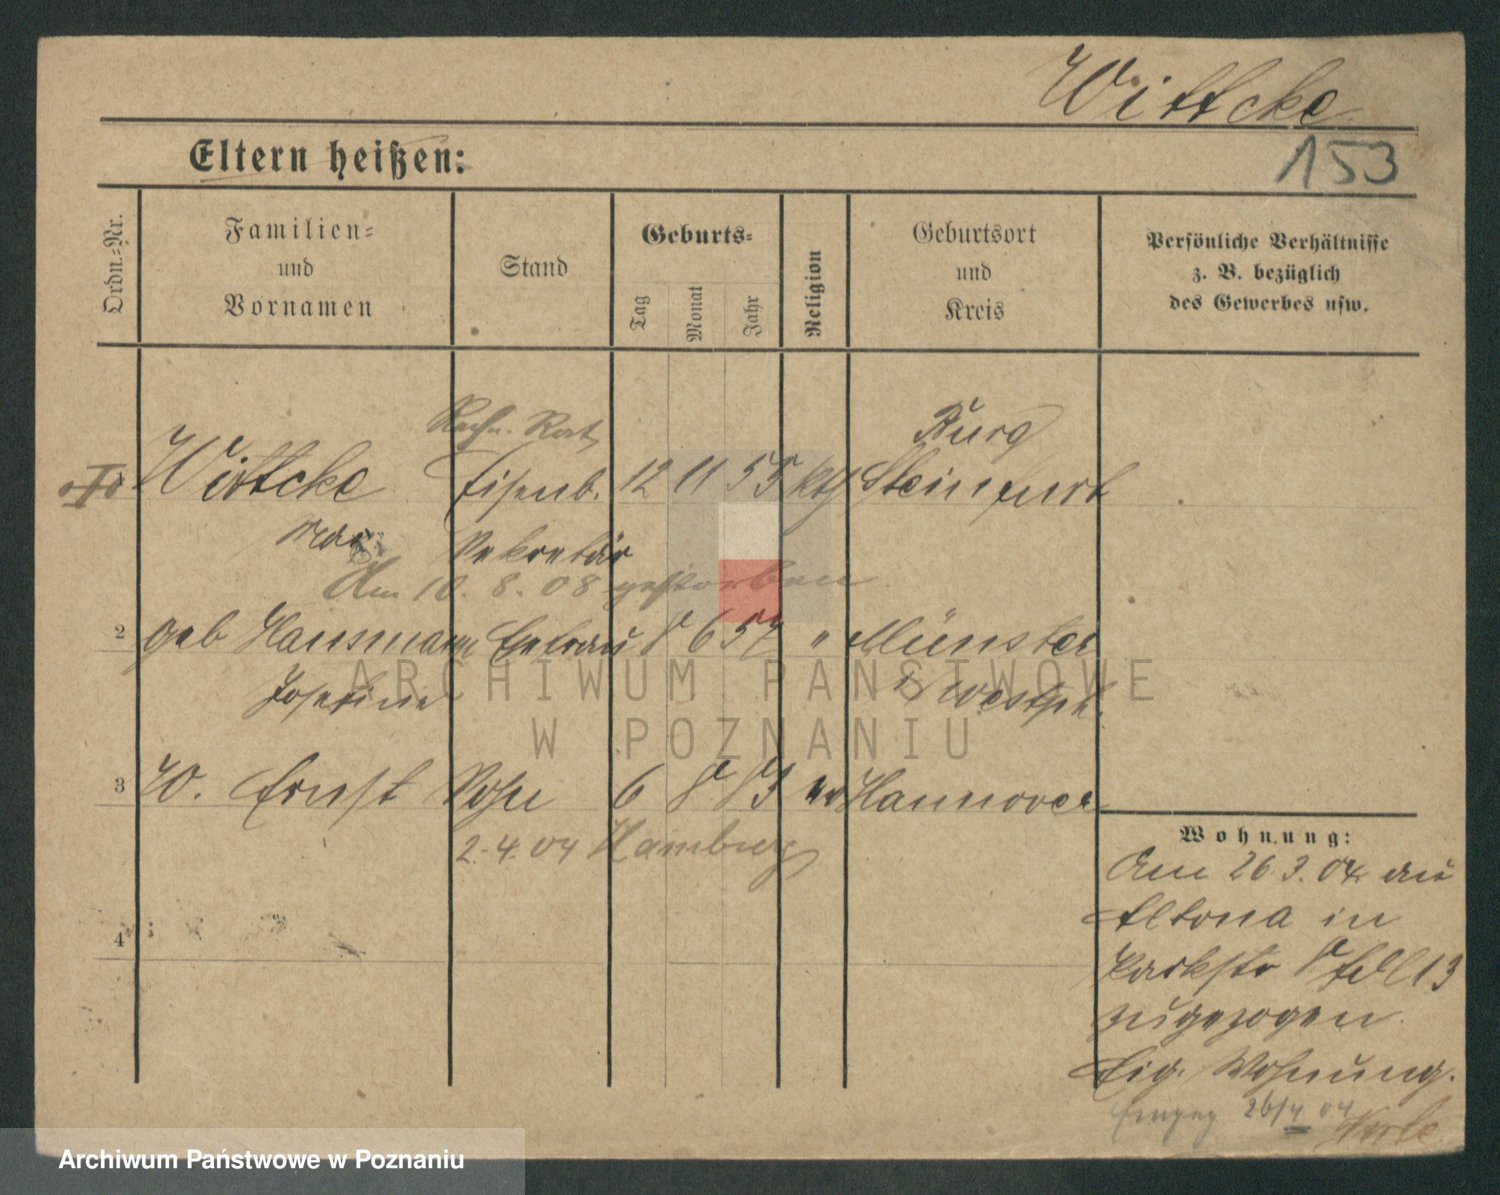 Wittcke
153
Eltern heißen:
Ordn.-Nr.
Familien-
und
Vornamen
Stand
Geburts-
Tag
Monat
Jahr
Religion
Geburtsort
und
Kreis
Persönliche Verhältnisse
z. B. bezüglich
des Gewerbes usw.
Rechn. Rat
Burg
Wittcke Eisenb. 12 11 55 kth Steinfurt
Max Sekretär
Am 10. 8. 08 gestorben.
2 geb Hausmann Ehefrau 8 6 57 " Münster
Josefine i/ Westph.
3 W. Ernst Sohn 6 8 83 Hannover
2.4.04 Hamburg
Wohnung:
Am 26 3. 04 aus
4
Altona in
Parkstr 8 13
zugezogen.
Eig. Wohnung.
26/4 04
ARCHIWUM PAŃSTWOWE
W POZNANIU
Archiwum Państwowe w Poznaniu